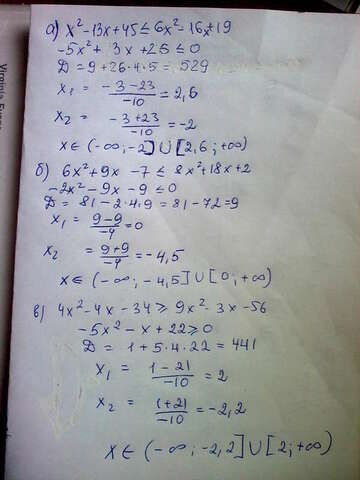 а) x²-13x+45≤6x²-16x+19
-5x²+3x+26≤0
D=9+26·4·5=529
x₁=(-3-23)/(-10)=2,6
x₂=(-3+23)/(-10)=-2
x∈(-∞;-2]∪[2,6;+∞)
б) 6x²+9x-7≤8x²+18x+2
-2x²-9x-9≤0
D=81-2·4·9=81-72=9
x₁=(9-9)/(-4)=0
x₂=(9+9)/(-4)=-4,5
x∈(-∞;-4,5]∪[0;+∞)
в) 4x²-4x-34≥9x²-3x-56
-5x²-x+22≥0
D=1+5·4·22=441
x₁=(1-21)/(-10)=2
x₂=(1+21)/(-10)=-2,2
x∈(-∞;-2,2]∪[2;+∞)